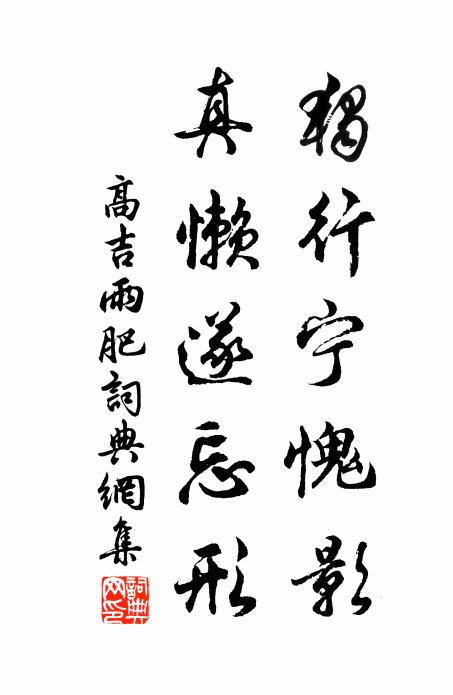 獨行宁愧影
真懒遂忘形
高吉雨肥詞典網集
詞典网印